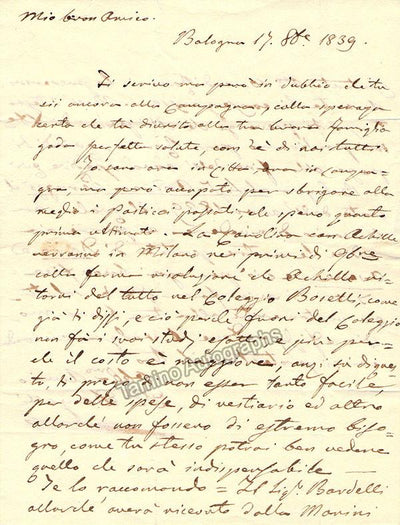 Mio buon Amico.
Bologna 17. 8bre 1839.
Ti scrivo ma però in dubbio che tu
sii ancora alla Campagna, colla speranza
certo che tu diviso alla tua buona famiglia
goda perfetta salute, com'è di noi tutti.
Io sono ora in città ora in campa=
gna, ma però occupato per sbrigare alla
meglio i pasticci passati che spero quanto
prima ultimato. La Carolina con Achille
verranno in Milano nei primi di 9bre
colla ferma risoluzione che Achille ri=
torni del tutto nel Coleggio Boselli, come
già ti dissi, e ciò perche fuori del Coleggio
non fà i suoi studj esatti, e più per=
che il costo è maggiore, anzi su di ques=
to, ti prego a non esser tanto facile,
per delle spese, di vestiario ed altro
allorche non fossero di estremo biso=
gno, come tu stesso potrai ben vedere
quello che sarà indispensabile
Te lo raccomando = Il Sigr. Bardelli
allorche averà ricevuto dalla Marini
Tamino Autographs